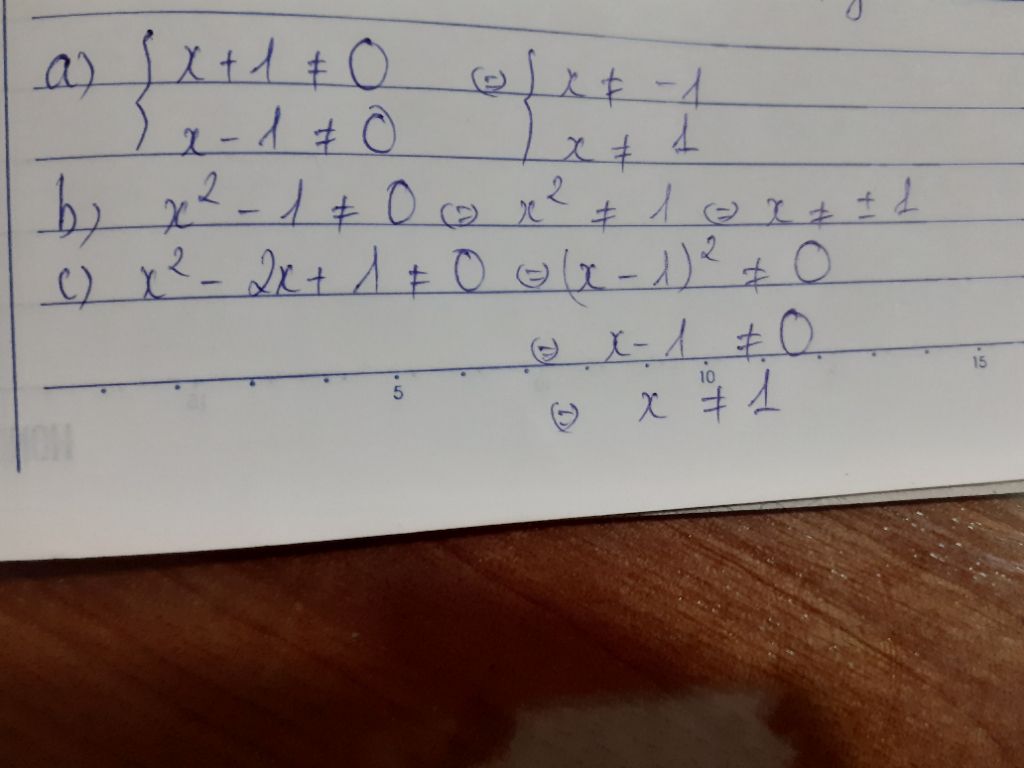 a) { x + 1 ≠ 0 ⇔ { x ≠ -1
x - 1 ≠ 0 x ≠ 1
b) x² - 1 ≠ 0 ⇔ x² ≠ 1 ⇔ x ≠ ± 1
c) x² - 2x + 1 ≠ 0 ⇔ (x - 1)² ≠ 0
⇔ x - 1 ≠ 0
5 10 15
⇔ x ≠ 1